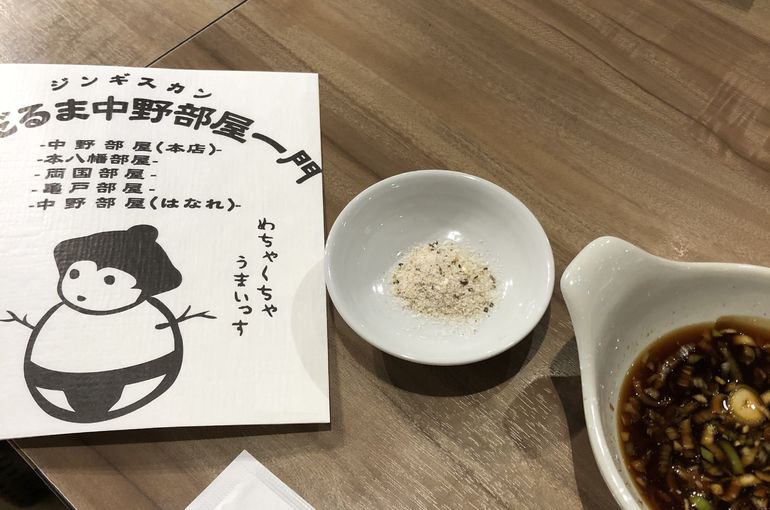 ジンギスカン
だるま中野部屋一門
-中野部屋(本店)-
-本八幡部屋-
-両国部屋-
-亀戸部屋-
-中野部屋(はなれ)-
めちゃくちゃ
うまいっす